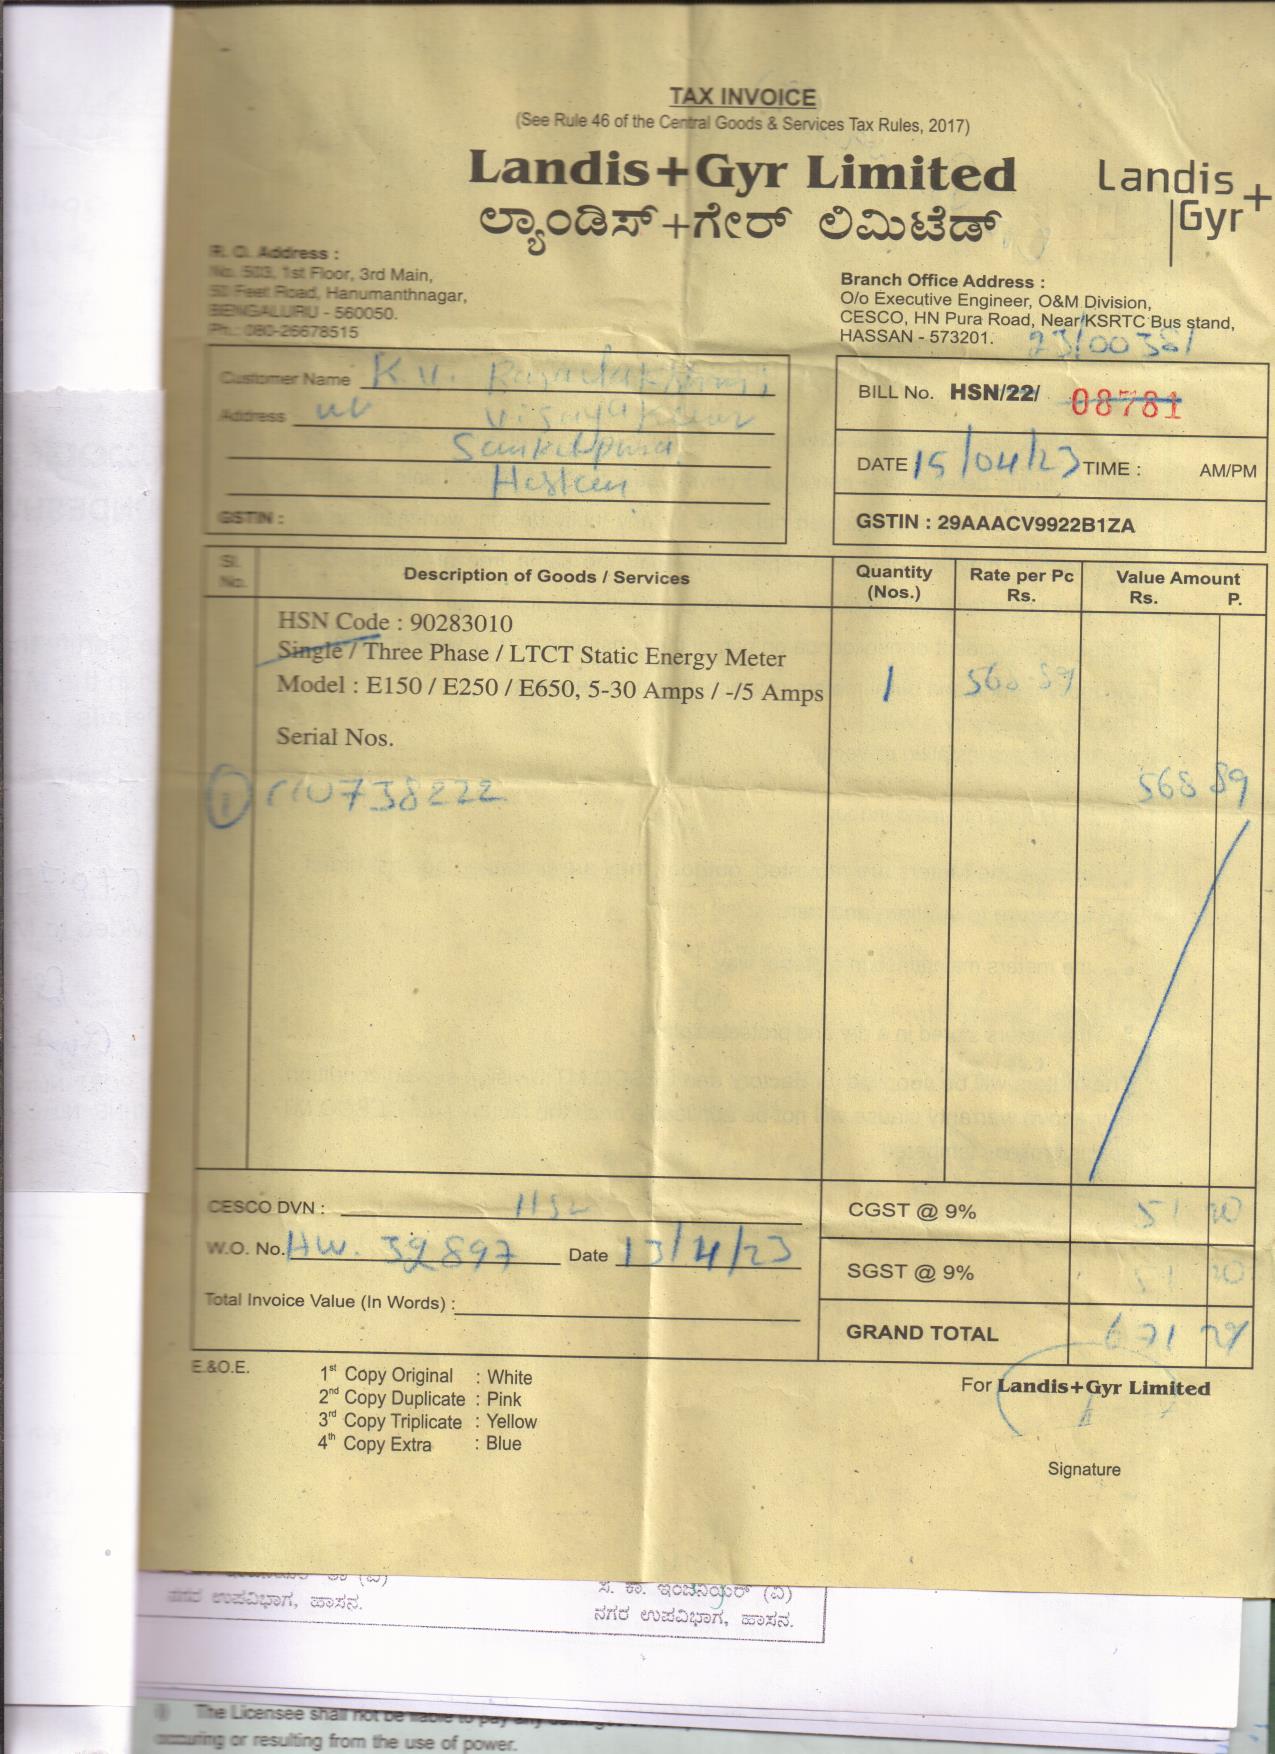 TAX INVOICE
(See Rule 46 of the Central Goods & Services Tax Rules, 2017)
Landis+Gyr Limited
Landis+
Gyr
ಲ್ಯಾಂಡಿಸ್+ಗೇರ್ ಲಿಮಿಟೆಡ್
R. O. Address :
No. 503, 1st Floor, 3rd Main,
50 Feet Road, Hanumanthnagar,
BENGALURU - 560050.
Ph.: 080-26678515
Branch Office Address :
O/o Executive Engineer, O&M Division,
CESCO, HN Pura Road, Near KSRTC Bus stand,
HASSAN - 573201.
Customer Name K.V.
Address
GSTIN :
BILL No. HSN/22/ 08781
DATE 15/04/23 TIME : AM/PM
GSTIN : 29AAACV9922B1ZA
Sl. No. Description of Goods / Services Quantity (Nos.) Rate per Pc Rs. Value Amount Rs. P.
HSN Code : 90283010
Single / Three Phase / LTCT Static Energy Meter
Model : E150 / E250 / E650, 5-30 Amps / -/5 Amps 1 568 89
Serial Nos.
568 89
CESCO DVN :
W.O. No. HW. 39897 Date 13/4/23
Total Invoice Value (In Words) :
CGST @ 9% 51 20
SGST @ 9% 51 20
GRAND TOTAL 671 29
E.&O.E.
1st Copy Original : White
2nd Copy Duplicate : Pink
3rd Copy Triplicate : Yellow
4th Copy Extra : Blue
For Landis+Gyr Limited
Signature
ನಗರ ಉಪವಿಭಾಗ, ಹಾಸನ.
ಸ. ಕಾ. ಇಂಜಿನಿಯರ್ (ವಿ)
ನಗರ ಉಪವಿಭಾಗ, ಹಾಸನ.
The Licensee shall not be liable to pay any
occuring or resulting from the use of power.